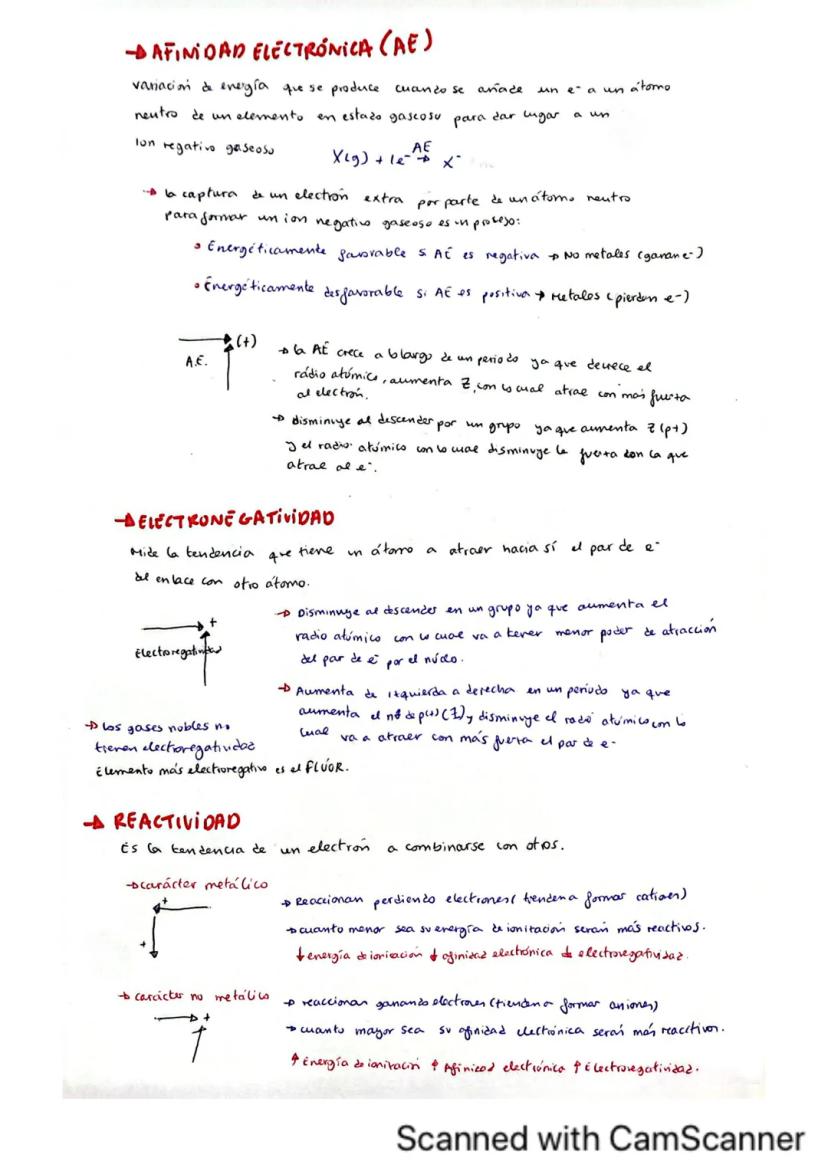 → AFINIDAD ELECTRÓNICA (AE)
variación de energía que se produce cuando se añade un e⁻ a un átomo
neutro de un elemento en estado gaseoso para dar lugar a un
Ion negativo gaseoso X(g) + 1e⁻ AE→ X⁻
→ la captura de un electrón extra por parte de un átomo neutro
para formar un ion negativo gaseoso es un proceso:
• Energéticamente favorable si AE es negativa → No metales (ganan e⁻)
• Energéticamente desfavorable si AE es positiva → Metales (pierden e⁻)
(+)
A.E.
→ la AE crece a lo largo de un periodo ya que decrece el
rádio atómico, aumenta Z, con lo cual atrae con más fuerza
al electrón.
→ disminuye al descender por un grupo ya que aumenta Z (p+)
y el radio atómico con lo cual disminuye la fuerza con la que
atrae al e⁻.
→ ELECTRONEGATIVIDAD
Mide la tendencia que tiene un átomo a atraer hacia sí el par de e⁻
del enlace con otro átomo.
+
Electronegatividad
→ Disminuye al descender en un grupo ya que aumenta el
radio atómico con lo cual va a tener menor poder de atracción
del par de e⁻ por el núcleo.
→ Aumenta de izquierda a derecha en un periodo ya que
aumenta el nº de p(+) (Z), y disminuye el radio atómico con lo
cual va a atraer con más fuerza el par de e⁻
→ Los gases nobles no
tienen electronegatividad
Elemento más electronegativo es el FLÚOR.
→ REACTIVIDAD
Es la tendencia de un electrón a combinarse con otros.
→ carácter metálico
+
+
→ Reaccionan perdiendo electrones (tienden a formar cationes)
→ cuanto menor sea su energía de ionización serán más reactivos.
↓ energía de ionización ↓ afinidad electrónica ↓ electronegatividad.
→ carácter no metálico
+
→ reaccionan ganando electrones (tienden a formar aniones)
→ cuanto mayor sea su afinidad electrónica serán más reactivos.
↑ Energía de ionización ↑ Afinidad electrónica ↑ Electronegatividad.
Scanned with CamScanner